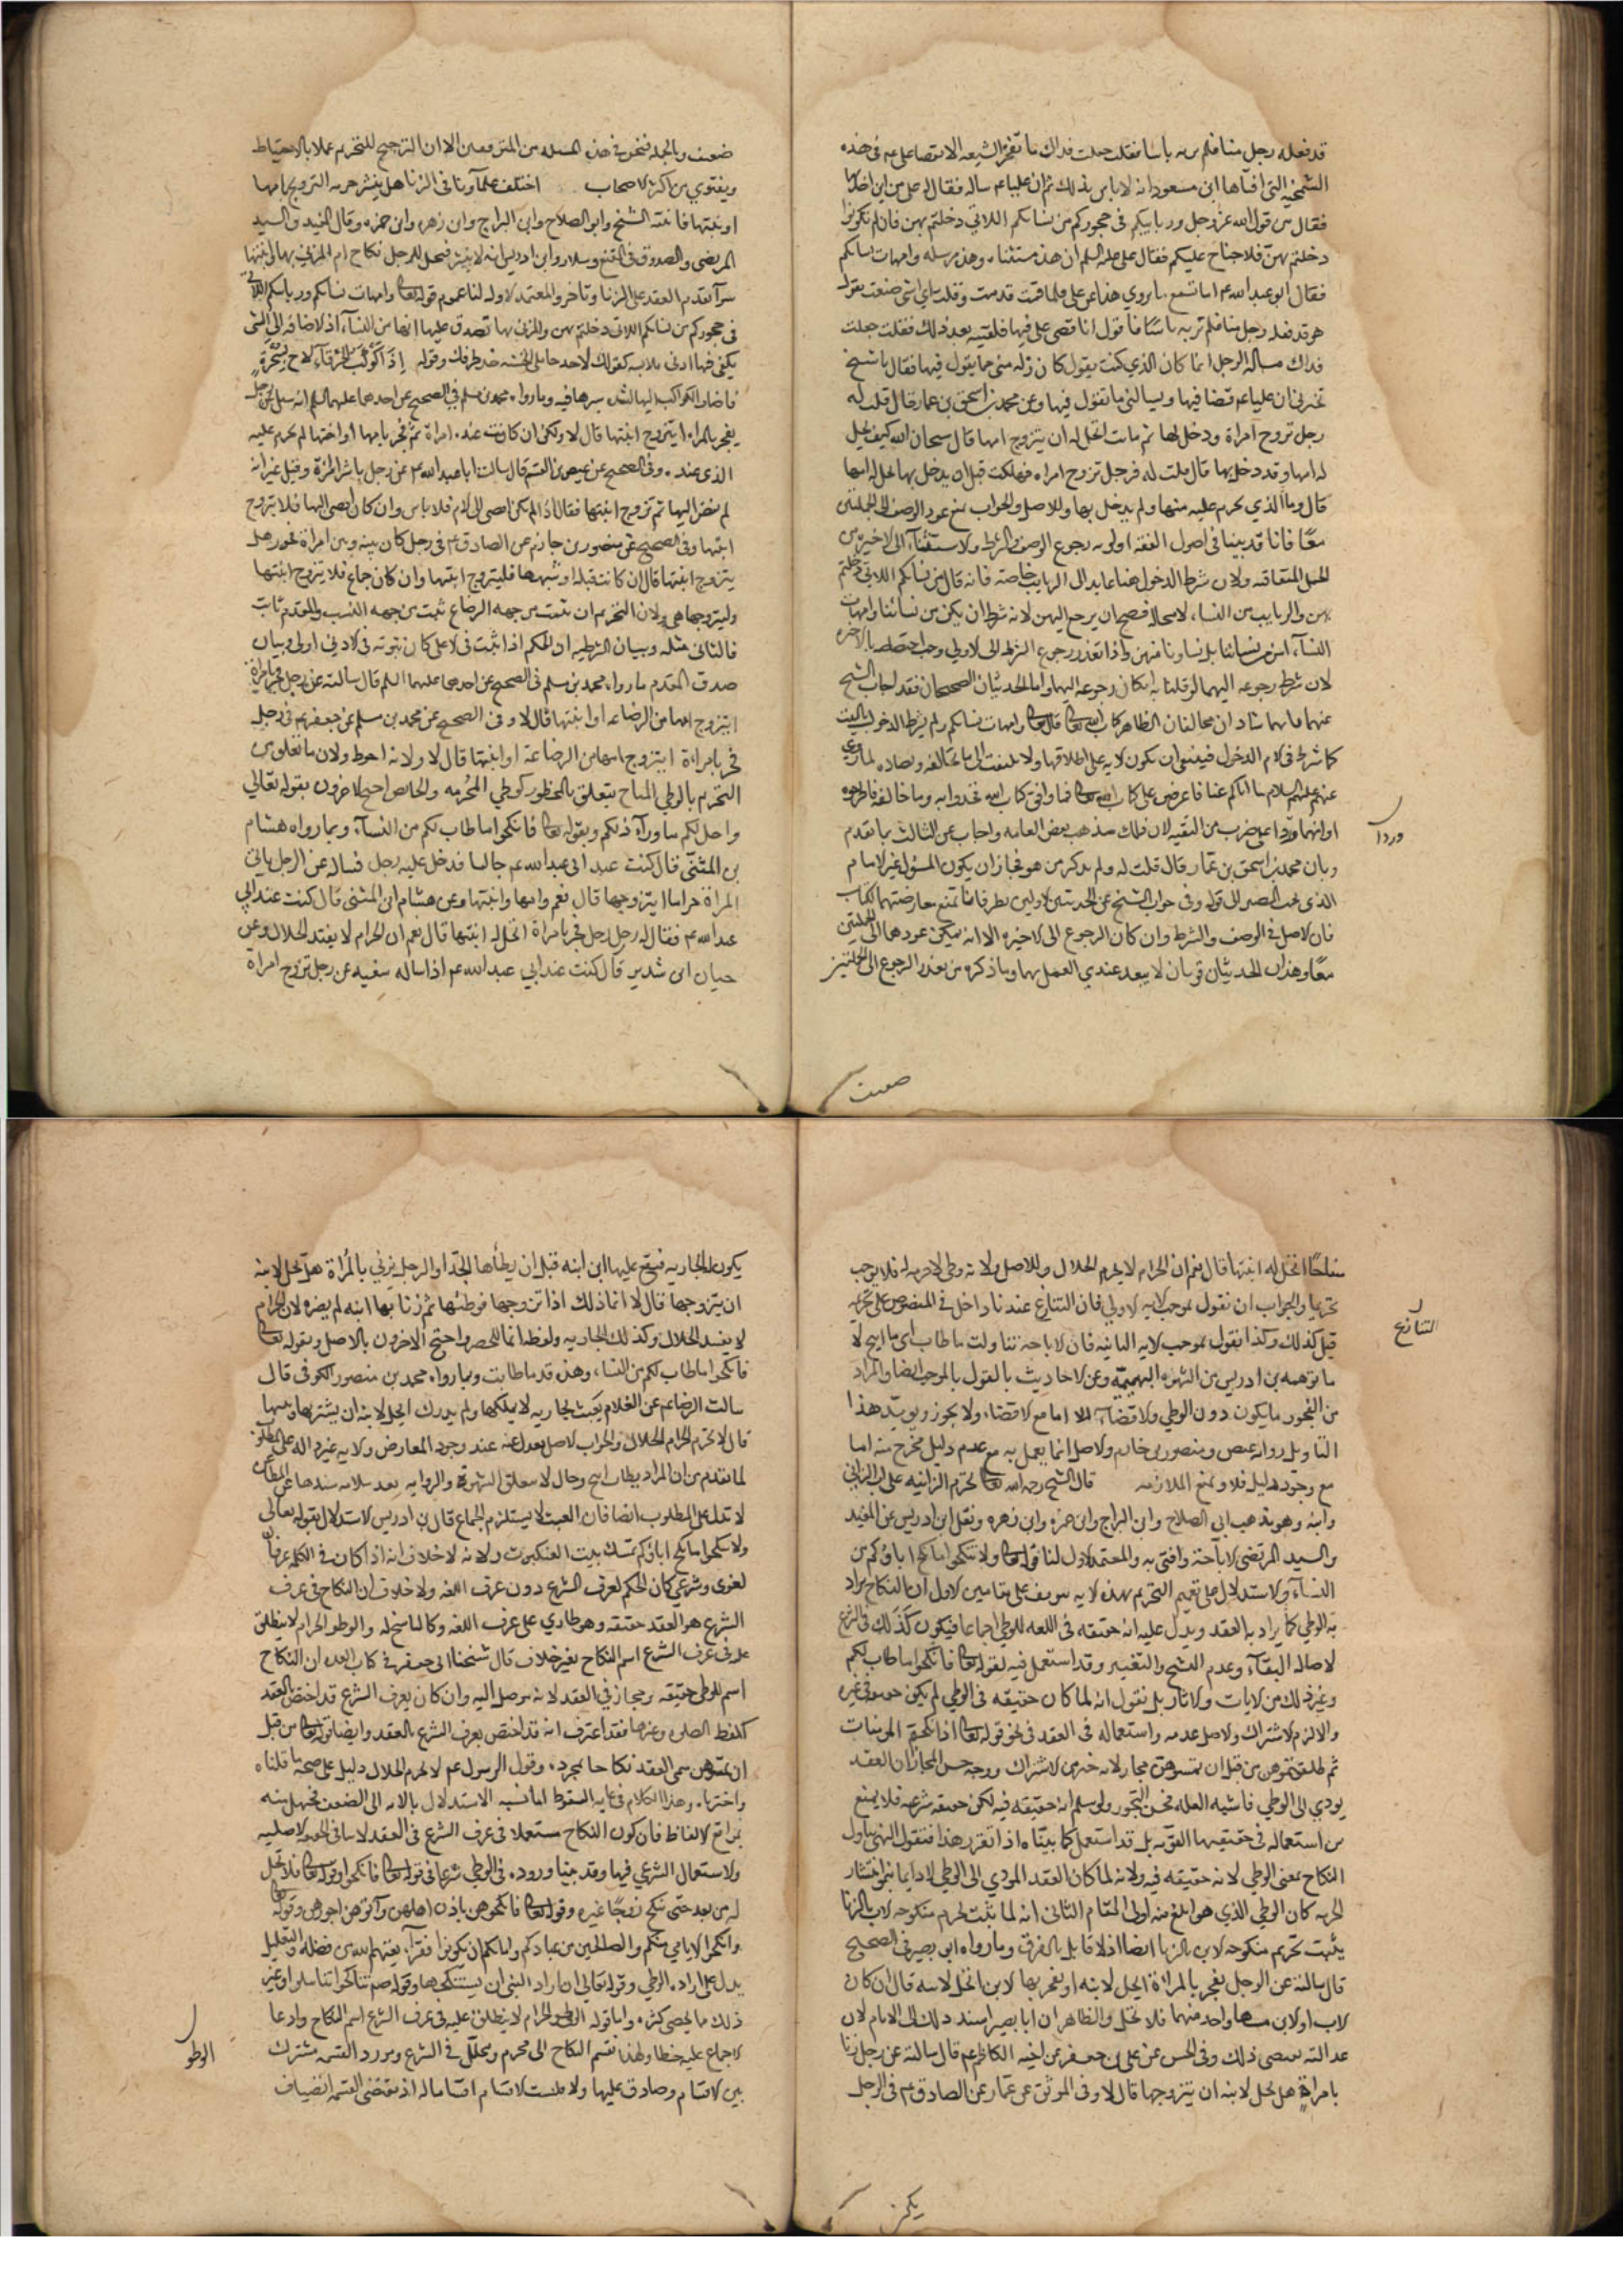 قد فعله رجل منا فلم ير به باسا فقلت جعلت فداك ما تفخر الشيعه الا بقضاء على عم فى هذه
الشمخية التى افتاها ابن مسعود انه لا باس بذلك ثم ان عليا عم ساله فقال له على من اين اخذتها
فقال من قول الله عز وجل وربايبكم فى حجوركم من نسايكم اللاتى دخلتم بهن فان لم تكونوا
دخلتم بهن فلا جناح عليكم فقال على عليه السلم ان هذه مستثناه وهذه مرسله وامهات نسايكم
فقال ابو عبد الله عم اما تسمع ما يروي هذا عن على فلما قمت ندمت وقلت اي شى صنعت يقول
هو قد فعله رجل منا فلم نر به باسا فاقول انا قضى على فيها فلقيته بعد ذلك فقلت جعلت
فداك مساله الرجل انما كان الذي كنت يقول كان زله منى فما يقول فيها فقال يا شيخ
تخبرنى ان عليا عم قضا فيها وتسالنى ما تقول فيها وعن محمد بن اسحق بن عمار قال قلت له
رجل تزوج امراة ودخل بها ثم ماتت ايحل له ان يتزوج امها قال سبحان الله كيف يحل
له امها وقد دخل بها قال قلت له فرجل تزوج امراه فهلكت قبل ان يدخل بها يحل له امها
قال وما الذي يحرم عليه منها ولم يدخل بها وللاصل والجواب نمنع عود الوصف الى الجملتين
معًا فانا قد بينا فى اصول الفقه اولويه رجوع الوصف والشرط والاستثنآء الى الاخيره من
الجمل المتعاقبه ولان شرط الدخول هنا عايد الى الربايب خاصه فانه قال من نسايكم اللاتى دخلتم
بهن والربايب من النسآء لا محاله فصح ان يرجع اليهن لانه شرط ان يكن من نسائنا وامهات
النسآء ليس من نسائنا بل نساونا منهن واذا تعذر رجوع الشرط الى الاولى وجب اختصاصه بالاخيره
لان شرط رجوعه اليهما لو قلنا به امكان رجوعه اليهما واما الحديثان الصحيحان فقد اجاب الشيخ
عنهما بانهما شاذان مخالفان لظاهر كتاب الله تعالى قال تعالى وامهات نسايكم ولم يشترط الدخول بالبنت
كما شرط فى الام الدخول فينبغى ان يكون الايه على اطلاقها ولا يلتفت الى ما يخالفه ويضاده لما روي
عنهم عليهم السلام ما اتاكم عنا فاعرضوه على كتاب الله تعالى فما وافق كتاب الله فخذوا به وما خالفه فاطرحوه
او انهما وردا على ضرب من التقيه لان ذلك مذهب بعض العامه واجاب عن الثالث بما تقدم
وبان محمد بن اسحق بن عمار قال قلت له ولم يذكر من هو فجاز ان يكون المسؤل غير الامام
الذى يجب المصير الى قوله وفى جواب الشيخ عن الحديثين الاولين نظر فانا نمنع معارضتهما الكتاب
فان الاصل فى الوصف والشرط وان كان الرجوع الى الاخيره الا انه يمكن عودهما الى الجملتين
معًا وهذان الحديثان قويان لا يبعد عندي العمل بهما وما ذكره من تعذر الرجوع الى الجملتين
وردا
ضعيف
ضعيف وبالجمله فنحن فى هذه المسله من المتوقفين الا ان الترجيح للتحريم عملا بالاحتياط
وبفتوي من اكثر الاصحاب اختلف علمآونا فى الزنا هل ينشر حرمه التزويج بامها
او بنتها فاثبته الشيخ وابو الصلاح وابن البراج وابن زهره وابن حمزه وقال المفيد والسيد
المرتضى والصدوق فى المقنع وسلار وابن ادريس انه لا ينشر فيحل للرجل نكاح ام المزنى بها وابنتها
سوآء تقدم العقد على الزنا او تاخر والمعتمد الاول لنا عموم قوله تعالى وامهات نسايكم وربايبكم اللاتى
فى حجوركم من نسايكم اللاتى دخلتم بهن والمزنى بها تصدق عليها انها من النسآء اذ الاضافه الى الشى
يكفى فيها ادنى ملابسه كقولك لاحد حاملى الخشبه خذ طرفك وقوله اذا كوكب الخرقآء لاح بسحرةٍ
فاضاف الكواكب اليها لشده سيرها فيه وما رواه محمد بن مسلم فى الصحيح عن احدهما عليهما السلم انه سيل عن رجل
يفجر بالمراه ايتزوج ابنتها قال لا ولكن ان كانت عنده امراة ثم فجر بامها او اختها لم يحرم عليه
الذى عنده وفى الصحيح عن عيص بن القسم قال سالت ابا عبد الله عم عن رجل باشر امراة وقبل غير انه
لم يفض اليها ثم تزوج ابنتها فقال اذا لم يكن افضى الى الام فلا باس وان كان افضى اليها فلا يتزوج
ابنتها وفى الصحيح عن منصور بن حازم عن الصادق عم فى رجل كان بينه وبين امراة فجور هل
يتزوج ابنتها قال ان كانت قبله او شبهها فليتزوج ابنتها وان كان جماع فلا يتزوج ابنتها
وليتزوجها هى ولان التحريم ان ثبت من جهه الرضاع ثبت من جهه النسب والمقدم ثابت
فالتالى مثله وبيان الشرطيه ان الحكم اذا ثبت فى الاعلى كان ثبوته فى الادنى اولى وبيان
صدق المقدم ما رواه محمد بن مسلم فى الصحيح عن احدهما عليهما السلم قال سالته عن رجل فجر بامراة
ايتزوج امها من الرضاعه او ابنتها قال لا وفى الصحيح عن محمد بن مسلم عن ابى جعفر عم فى رجل
فجر بامراة ايتزوج امها من الرضاعة او ابنتها قال لا ولانه احوط ولان ما تعلق من
التحريم بالوطى المباح يتعلق بالمحظور كوطى المحرمه والحايض احتج الاخرون بقوله تعالى
واحل لكم ما ورآء ذلكم وبقوله تعالى فانكحوا ما طاب لكم من النسآء وبما رواه هشام
بن المثنى قال كنت عند ابى عبد الله عم جالسا فدخل عليه رجل فساله عن الرجل ياتى
المراة حراما ايتزوجها قال نعم وامها وابنتها وعن هشام بن المثنى قال كنت عند ابى
عبد الله عم فقال له رجل رجل فجر بامراة اتحل له ابنتها قال نعم ان الحرام لا يفسد الحلال وعن
حنان ابن سدير قال كنت عند ابى عبد الله عم اذا ساله سعيد عن رجل تزوج امراة
سفاحًا اتحل له ابنتها قال نعم ان الحرام لا يحرم الحلال وللاصل ولانه وطى لا حرمه له فلا يوجب
تحريما والجواب ان نقول بموجب الايه الاولى فان التنازع عندنا داخل فى المنصوص على تحريمه
قبل كذلك وكذا نقول بموجب الايه الثانيه فان الاباحه تناولت ما طاب اى ما ابيح لا
ما توهمه بن ادريس من الشهوه البهيميه وعن الاحاديث بالقول بالموجب ايضا والمراد
من الفجور ما يكون دون الوطى والافضآء اما مع الافضاء ولا يجوز ويويد هذا
التاويل رواية عيص ومنصور بن حازم والاصل انما يعمل به مع عدم دليل مخرج منه اما
مع وجود دليل فلا ونمنع الملازمه قال الشيخ رحمه الله تعالى تحرم الزانيه على اب الزانى
وابنه وهو مذهب ابى الصلاح وابن البراج وابن حمزه وابن زهره ونقل ابن ادريس عن المفيد
والسيد المرتضى الاباحة وافتى به والمعتمد الاول لنا قوله تعالى ولا تنكحوا ما نكح اباؤكم من
النسآء والاستدلال على تعميم التحريم بهذه الايه يتوقف على مقامين الاول ان النكاح يراد
به الوطى كما يراد به العقد ويدل عليه انه حقيقه فى اللغه للوطى اجماعا فيكون كذلك فى الشرع
لاصاله البقآء وعدم النسخ والتغيير وقد استعمل فيه لقوله تعالى فانكحوا ما طاب لكم
وغير ذلك من الايات والاثار بل نقول انه لما كان حقيقه فى الوطى لم يكن حقيقه فى غيره
والا لزم الاشتراك والاصل عدمه واستعماله فى العقد فى نحو قوله تعالى اذا نكحتم المومنات
ثم طلقتموهن من قبل ان تمسوهن مجاز لانه خير من الاشتراك ووجه حسن المجاز ان العقد
يودي الى الوطى فاشبه العله فحسن التجوز ولو سلم انه حقيقه فيه لكن حقيقه شرعيه فلا يمنع
من استعماله فى حقيقته اللغويه بل قد استعمل كما بيناه اذا تقرر هذا فنقول النهى يتناول
النكاح بمعنى الوطى لانه حقيقه فيه ولانه لما كان العقد المودي الى الوطى لا دايما ينوا انتشار
الحرمه كان الوطى الذي هو ابلغ منه اولى المقام الثانى انه لما ثبت تحريم منكوحه الاب بالزنا
يثبت تحريم منكوحه الابن بالزنا ايضا اذ لا قايل بالفرق وما رواه ابو بصير فى الصحيح
قال سالته عن الرجل يفجر بالمراة ايحل لابنه او يفجر بها الابن اتحل لابيه قال ان كان
الاب او الابن مسها واحد منهما فلا تحل والظاهر ان ابا بصير اسند ذلك الى الامام لان
عدالته تقتضى ذلك وفى الحسن عن على بن جعفر عن اخيه الكاظم عم قال سالته عن رجل زنا
بامراة هل يحل لابنه ان يتزوجها قال لا وفى الموثق عن عمار عن الصادق عم فى الرجل
التنازع
يكون
يكون له الجاريه فيقع عليها ابن ابنه قبل ان يطأها الجد او الرجل يزنى بالمراة هل تحل لابنه
ان يتزوجها قال لا انما ذلك اذا تزوجها فوطئها ثم زنا بها ابنه لم يضره لان الحرام
لا يفسد الحلال وكذلك الجاريه ولفظه انما للحصر واحتج الاخرون بالاصل وبقوله تعالى
فانكحوا ما طاب لكم من النساء وهذه قد ما طابت وبما رواه محمد بن منصور الكوفى قال
سالت الرضا عم عن الغلام يعبث بجاريه لا يملكها ولم يدرك ايحل لابنه ان يشتريها ويمسها
قال لا يحرم الحرام الحلال والجواب الاصل يعدل عنه عند وجود المعارض والايه غير داله على المطلوب
لما تقدم من ان المراد بطاب ابيح وحال لا متعلق الشهوة والروايه بعد سلامه سندها عن المطاعن
لا تدل على المطلوب ايضا فان العبث لا يستلزم الجماع قال بن ادريس الاستدلال بقوله تعالى
ولا تنكحوا ما نكح اباؤكم تمسك ببيت العنكبوت ولانه لا خلاف انه اذا كان فى الكلمه عرفان
لغوى وشرعى كان الحكم لعرف الشرع دون عرف اللغه ولا خلاف ان النكاح فى عرف
الشرع هو العقد حقيقه وهو طارى على عرف اللغه وكالناسخ له والوطو الحرام لا ينطلق
عليه فى عرف الشرع اسم النكاح بغير خلاف قال شيخنا ابى جعفر فى كتاب العده ان النكاح
اسم للوطى حقيقه ومجاز فى العقد لانه موصل اليه وان كان بعرف الشرع قد اختص بالعقد
كلفظ الصلوه وغيرها فقد اعترف انه قد اختص بعرف الشرع بالعقد وايضا قوله تعالى من قبل
ان تمسوهن سمى العقد نكاحا بمجرده وقول الرسول عم لا يحرم الحرام الحلال دليل على صحه ما قلناه
واخترناه وهذا الكلام فى غايه السقوط اما نسبه الاستدلال بالايه الى الضعف فجهل منه
بمواقع الالفاظ فان كون النكاح مستعملا فى عرف الشرع فى العقد لا ينافى الحقيقه الاصليه
والاستعمال الشرعى فيها وقد بينا وروده فى الوطى شرعا فى قوله تعالى فانكحوا وقوله تعالى فلا تحل
له من بعد حتى تنكح زوجًا غيره وقوله تعالى فانكحوهن باذن اهلهن وآتوهن اجورهن وقوله تعالى
وانكحوا الايامى منكم والصالحين من عبادكم وامائكم ان يكونوا فقرآء يغنهم الله من فضله والتعليل
يدل على اراده الوطى وقوله تعالى ان اراد النبى ان يستنكحها وقوله صم تناكحوا تناسلوا وغير
ذلك مما لا يحصى كثره واما قوله الوطو الحرام لا ينطلق عليه فى عرف الشرع اسم النكاح وادعا
الاجماع عليه خطا ولهذا نقسم النكاح الى محرم ومحلل فى الشرع ومورد القسمه مشترك
بين الاقسام وصادق عليها والا فليست الاقسام اقساما له اذ مقتضى القسمه انضياف
الوطو